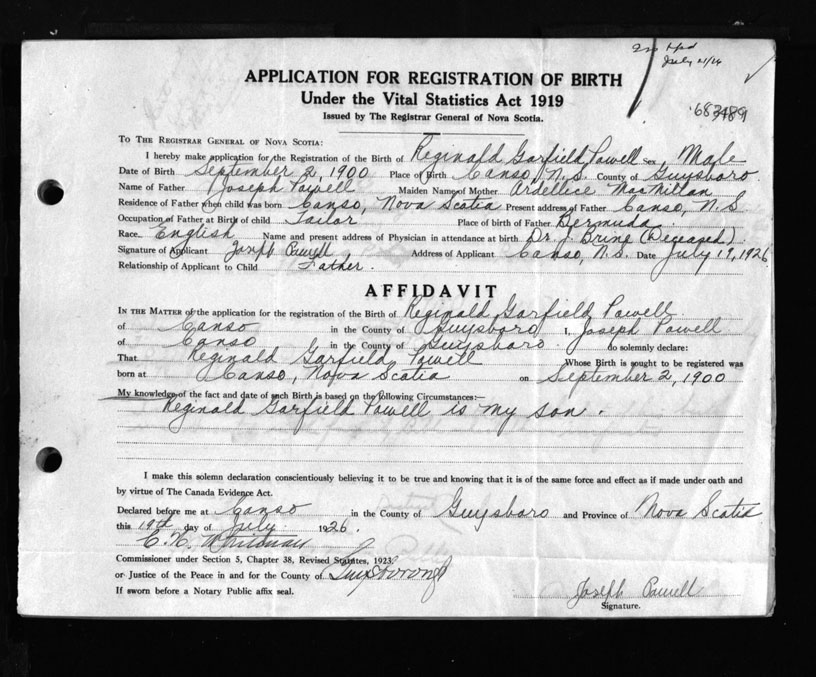 July 21/26
683489
APPLICATION FOR REGISTRATION OF BIRTH
Under the Vital Statistics Act 1919
Issued by The Registrar General of Nova Scotia.
TO THE REGISTRAR GENERAL OF NOVA SCOTIA:
I hereby make application for the Registration of the Birth of Reginald Garfield Powell Sex Male
Date of Birth September 2, 1900 Place of Birth Canso, N.S. County of Guysboro
Name of Father Joseph Powell Maiden Name of Mother Ardellice MacMillan
Residence of Father when child was born Canso, Nova Scotia Present address of Father Canso, N.S
Occupation of Father at Birth of child Tailor Place of birth of Father Bermuda
Race English Name and present address of Physician in attendance at birth Dr. J. Brine (Deceased).
Signature of Applicant Joseph Powell Address of Applicant Canso, N.S. Date July 19, 1926
Relationship of Applicant to Child Father.
AFFIDAVIT
IN THE MATTER of the application for the registration of the Birth of Reginald Garfield Powell
of Canso in the County of Guysboro I, Joseph Powell
of Canso in the County of Guysboro. do solemnly declare:
That Reginald Garfield Powell Whose Birth is sought to be registered was
born at Canso, Nova Scotia on September 2, 1900
My knowledge of the fact and date of such Birth is based on the following Circumstances:—
Reginald Garfield Powell is my son.
I make this solemn declaration conscientiously believing it to be true and knowing that it is of the same force and effect as if made under oath and
by virtue of The Canada Evidence Act.
Declared before me at Canso in the County of Guysboro and Province of Nova Scotia
this 19th day of July 1926.
C. H. Whitman
Commissioner under Section 5, Chapter 38, Revised Statutes, 1923
or Justice of the Peace in and for the County of Guysborough
If sworn before a Notary Public affix seal.
Joseph Powell
Signature.